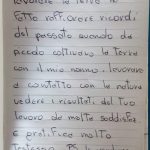 lavorare la terra mi
fatto riaffiorare ricordi
del passato quando da
piccolo coltivavo la terra
con il mio nonno. lavorare
a contatto con la natura
vedere i risultati del tuo
lavoro da molta soddisfaz
e gratifica molto